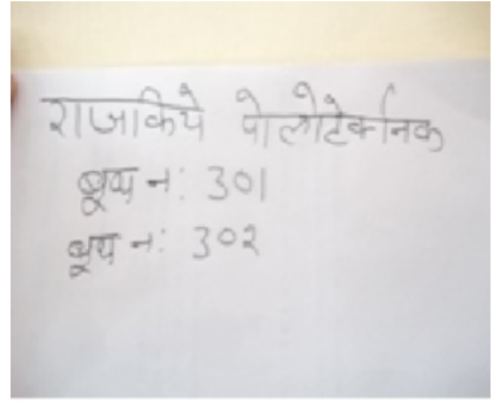 राजकिये पोलोटेक्निक
बूथ न: 301
बूथ न: 302